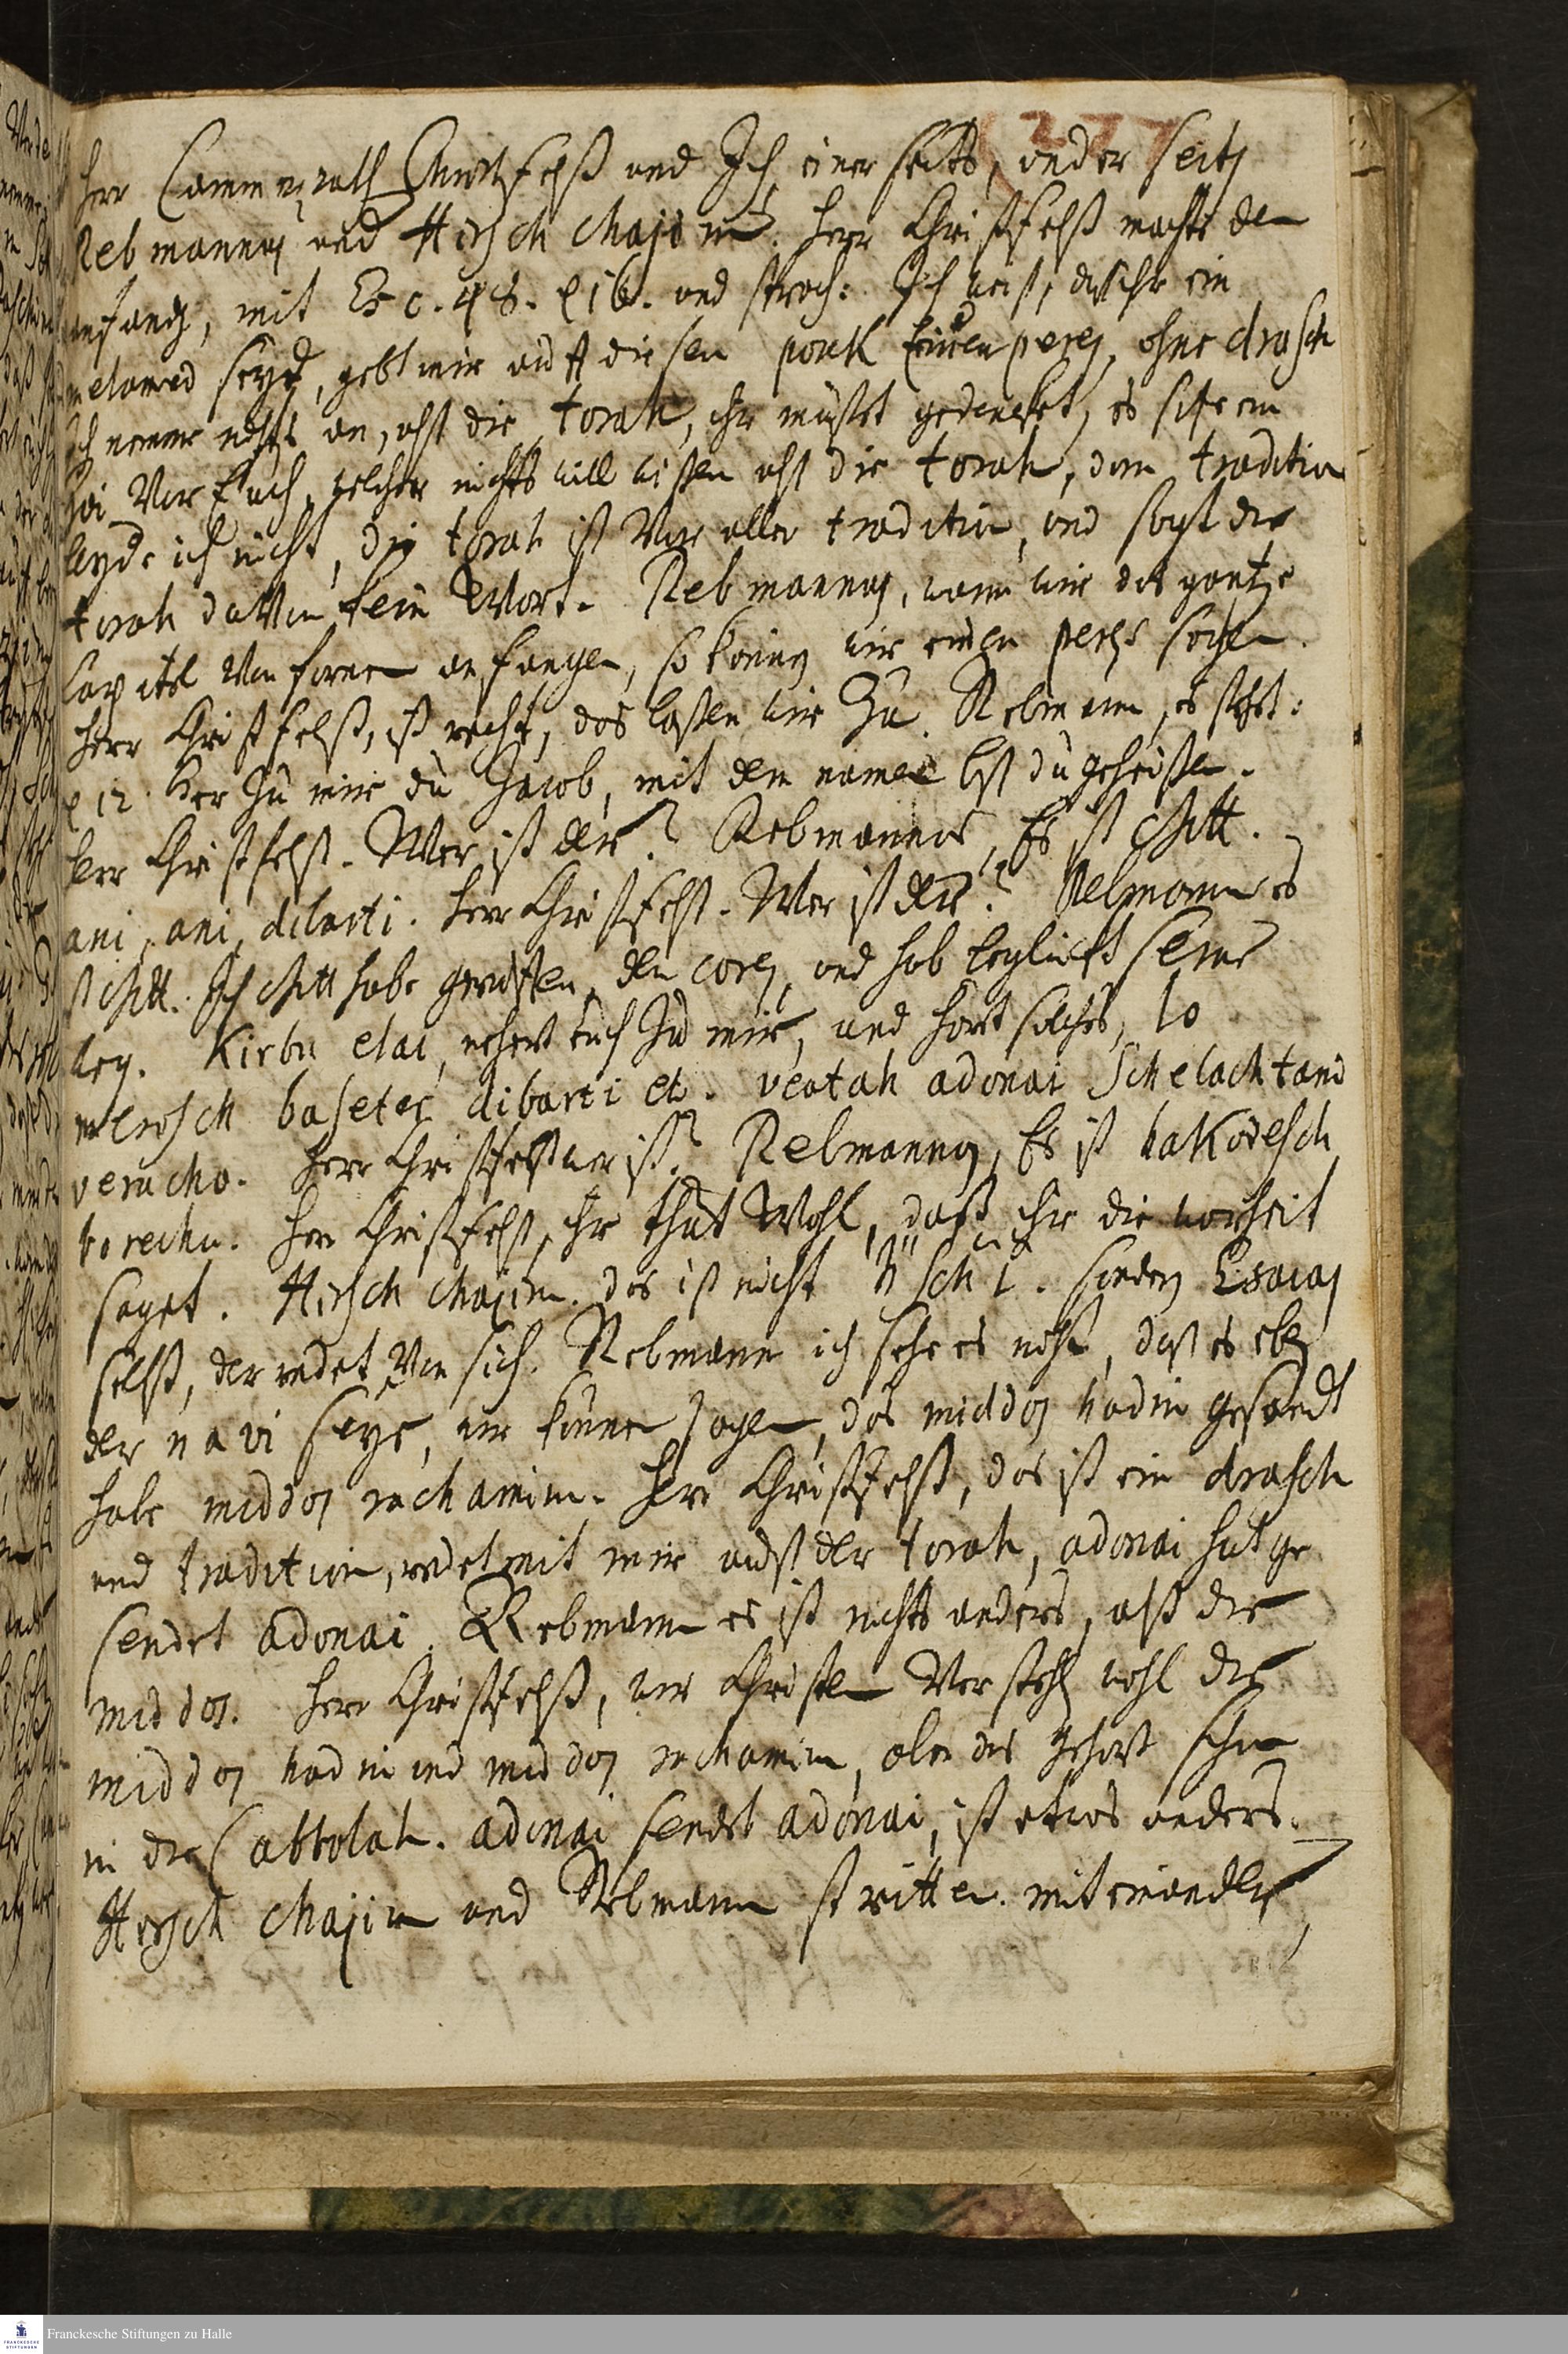 277
Herr Cammerrath Christfelß und Ich einer seits, ander seits
Reb mannes und Hirsch chajim. Herr Christfelß machte den
anfang, mit Es c. 48. v 16. und sprach: Ich weiß, daß ihr ein
melamed seyd, gebt mir auff diesen posuk einen peres, ohne drasch
Ich nemme nichts an, alß die torah, ihr müßet gedencken, es sitze ein
goi vor Euch, welcher nichts will wissen alß die torah, dann tradition
leyde ich nicht, die torah ist vor aller tradition, und sagt die
torah davon kein Wort. Reb mannes, wann wir das gantze
Capitel von fornen anfangen, so können wir einen peres sagen.
Herr Christfelß, ist recht, das lassen wir Zu. Rebmann, es stehet:
v 12. Hör Zu mir du Jacob, mit dem namen bist du geheissen.
Herr Christfelß. Wer ist der? Rebmannes, Es ist Gott.
ani, ani, dibarti. Herr Christfelß. Wer ist der? Rebmann es
ist Gott. Ich Gott habe geruffen, den cores, und hab beglückt seine
weg. Kirbu elai, nehert euch Zu mir, und hört solches, lo
merosch baseter dibarti etc. veatah adonai Schelachtani
verucho. Herr Christfelß wer ist? Rebmannes, Es ist hakodesch
borechu. Herr Christfelß, ihr thut Wohl, daß ihr die worheit
saget. Hirsch chajim. das ist nicht sondern Esaias
selbst, der redet von sich. Rebmann ich sehe es nicht, daß es eben
der navi seye, wir können sagen, das middos hadin gesandt
habe middos rachamim. Herr Christfelß, das ist ein drasch
und tradition, redet mit mir auß der torah, adonai hat ge
sendet adonai. Rebmann es ist nichts anders, alß die
middos. Herr Christfelß, wir Christen verstehen wohl die
middos hadin und middos rachamim, aber das gehört schon
in die Cabbolah. adonai sendet adonai, ist etwas anders.
Hirsch chajim und Rebmann stritten miteinander,
Franckesche Stiftungen zu Halle
FRANCKESCHE
STIFTUNGEN